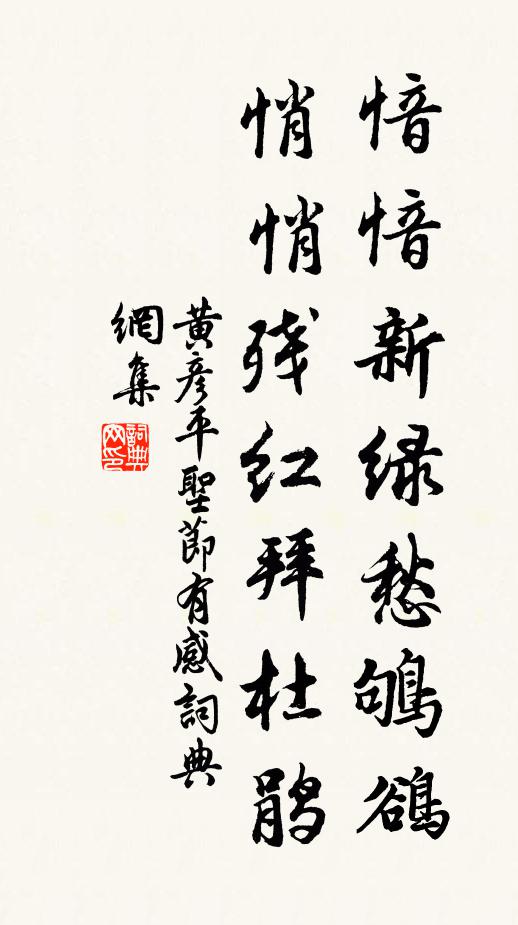 愔愔新绿愁鴝鵒
悄悄残红拜杜鹃
黄彦平聖節有感詞典
網集
詞典
网印